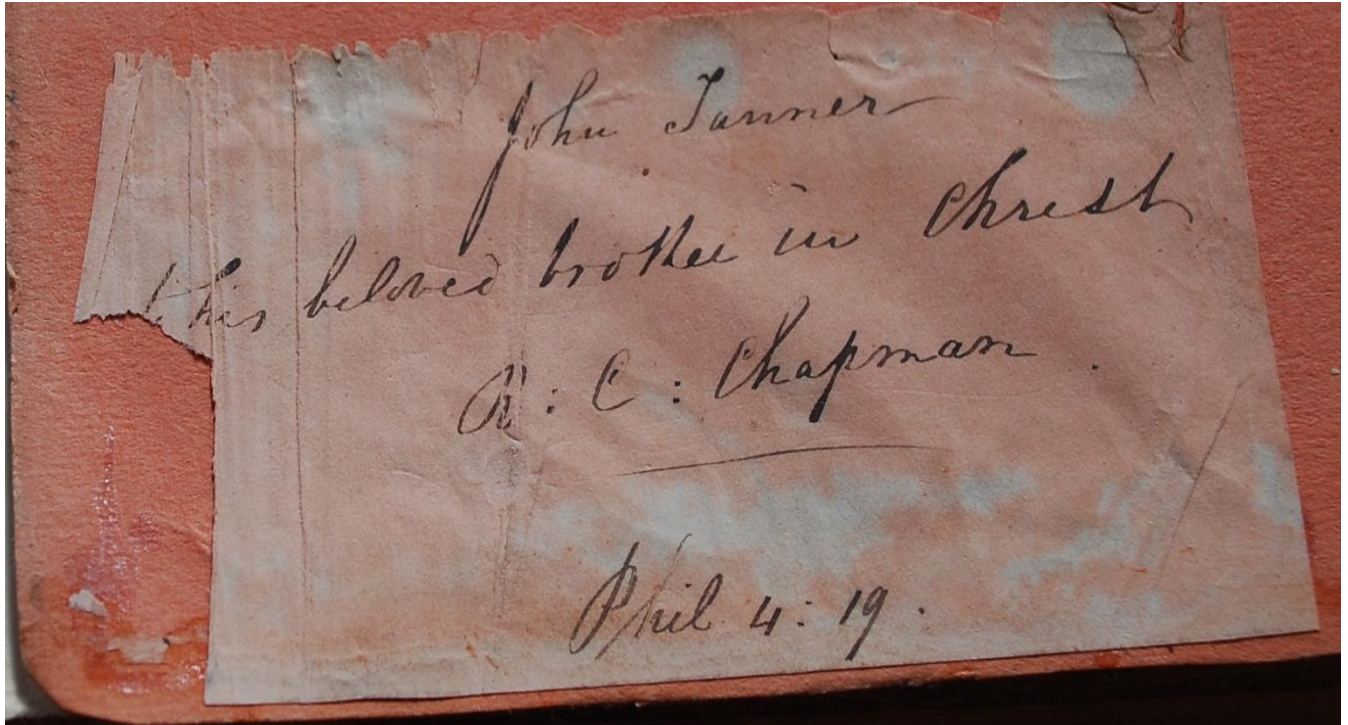 John Tanner
his beloved brother in Christ
R : C : Chapman .
Phil 4 : 19 .